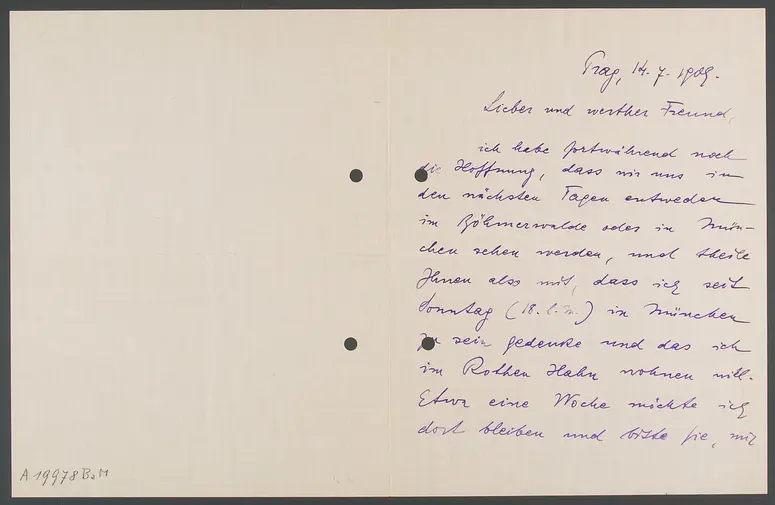 Prag, 14. 7. 1909.
Lieber und werther Freund,
ich habe fortwährend noch
die Hoffnung, dass wir uns in
den nächsten Tagen entweder
im Böhmerwalde oder in Mün-
chen sehen werden, und theile
Ihnen also mit, dass ich seit
Sonntag (18. l. M.) in München
zu sein gedenke und das ich
im Rothen Hahn wohnen will.
Etwa eine Woche möchte ich
dort bleiben und bitte Sie, mir
A 19978 BaM